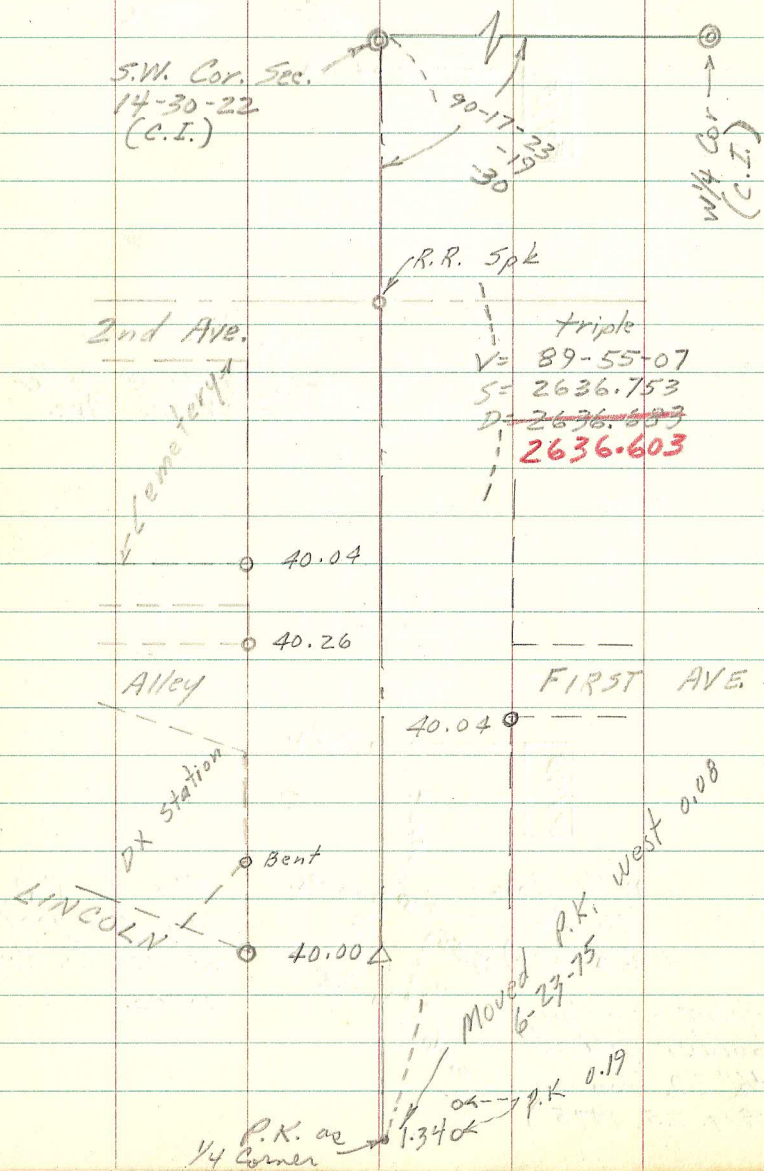 S.W. Cor. Sec.
14-30-22
(C.I.)
90-17-23
-19
-30
W 1/4 Cor
(C.I.)
R.R. Spk
2nd Ave.
triple
V= 89-55-07
S= 2636.753
D= 2636.683
2636.603
Cemetery
40.04
40.26
Alley
FIRST AVE.
40.04
DX Station
Bent
LINCOLN
40.00
Moved P.K. West 0.08
6-23-75
P.K 0.19
1.340
P.K. as
1/4 Corner